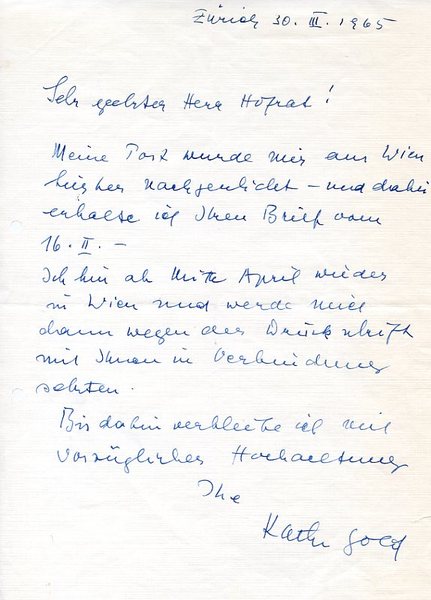 Zürich 30. III. 1965
Sehr geehrter Herr Hofrat!
Meine Post wurde mir aus Wien
hieher nachgeschickt – und daher
erhalte ich Ihren Brief vom
16. II. –
Ich bin ab Mitte April wieder
in Wien und werde mich
dann wegen der Druckschrift
mit Ihnen in Verbindung
setzten.
Bis dahin verbleibe ich mit
vorzüglicher Hochachtung
Ihre
Käthe Gold